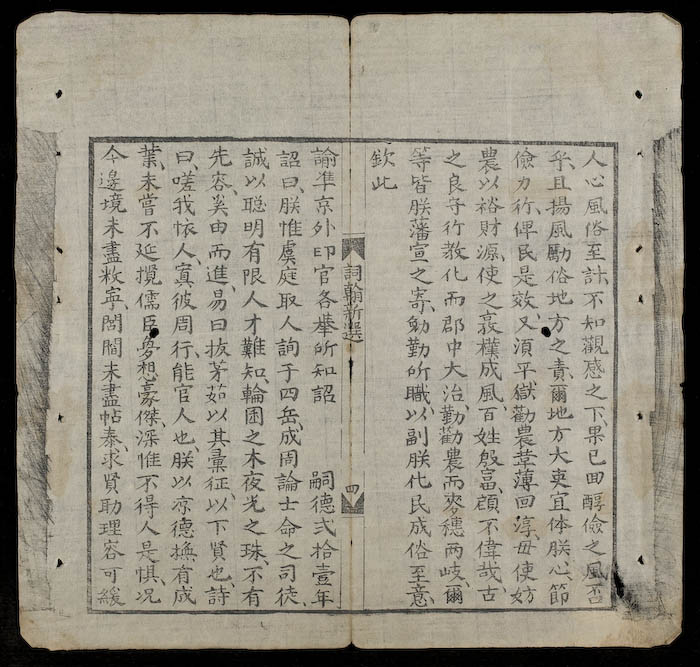 人心風俗至計不知觀感之下果已回醇儉之風否
乎且揚風勵俗地方之責爾地方大吏宜体朕心節
儉力行俾民是效又須平獄勸農革薄回淳毋使妨
農以裕財源使之裒樸成風百姓殷富顧不偉哉古
之良守行教化而郡中大治勸農而麥穗兩岐爾
等皆朕藩宣之寄勉勤所職以副朕化民成俗至意
欽此
詞翰新選 四
諭準京外印官各舉所知詔 嗣德弍拾壹年
詔曰朕惟虞庭取人詢于四岳成周論士命之司徒
誠以聰明有限人才難知輪囷之木夜光之珠不有
先容奚由而進易曰拔茅茹以其彙征以下賢也詩
曰嗟我怀人寘彼周行能官人也朕以凉德撫有成
業未嘗不延攬儒臣夢想豪傑深惟不得人是惧况
今邊境未盡敉寧閭閻未盡帖泰求賢助理容可緩